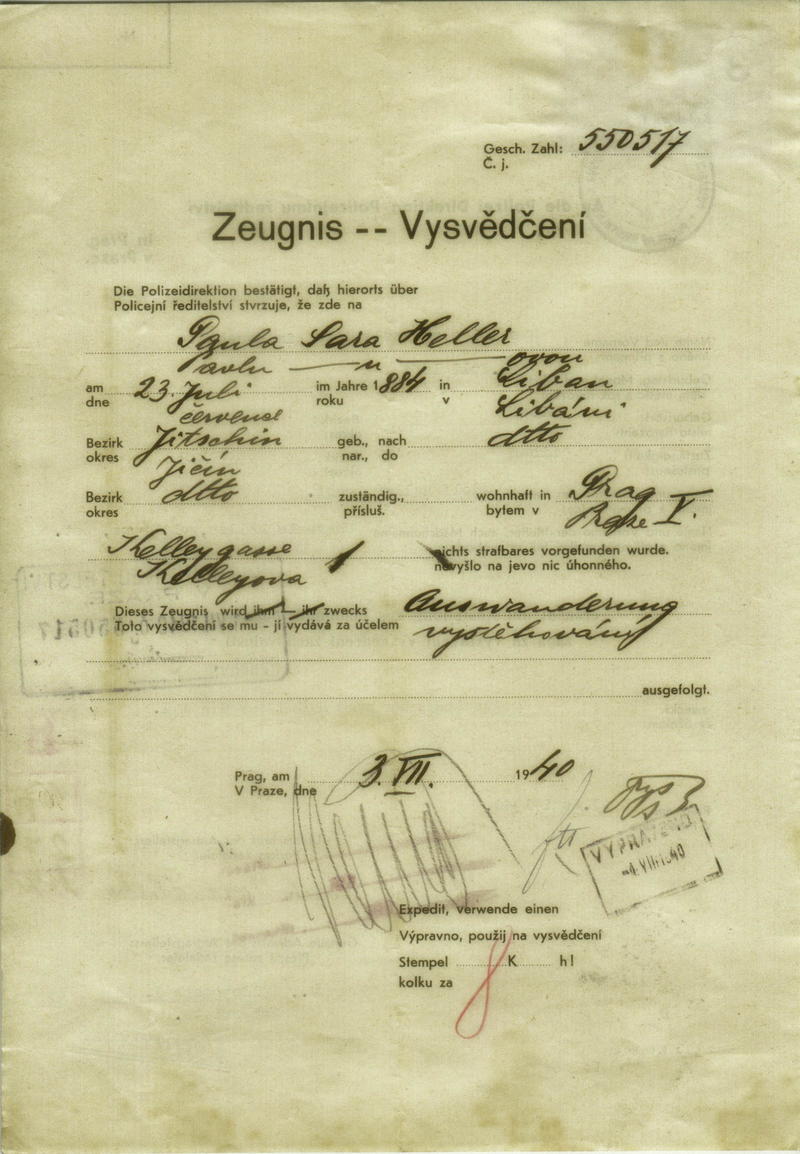 Gesch. Zahl: 550517
Č. j.
Zeugnis -- Vysvědčení
Die Polizeidirektion bestätigt, daß hierorts über
Policejní ředitelství stvrzuje, že zde na
Paula Sara Heller
Pavlu — " — ovou
am 23. Juli im Jahre 1884 in Liban
dne července roku v Libáni
Bezirk Jitschin geb., nach dtto
okres Jičín nar., do
Bezirk dtto zuständig., wohnhaft in Prag
okres přísluš. bytem v Praze V.
Kelleygasse 1 nichts strafbares vorgefunden wurde.
Kelleyova nevyšlo na jevo nic úhonného.
Dieses Zeugnis wird ihm — ihr zwecks Auswanderung
Toto vysvědčení se mu - jí vydává za účelem vystěhování
ausgefolgt.
Prag, am 3. VII. 1940
V Praze, dne
VYPRAVENO
-4. VII. 1940
Expedit, verwende einen
Výpravno, použij na vysvědčení
Stempel 8 K h!
kolku za